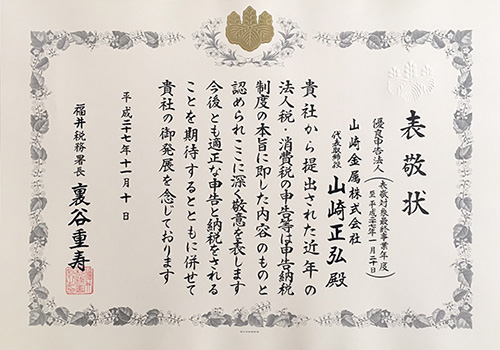 表敬状
優良申告法人
(表敬対象最終事業年度
至 平成二七年一月二十日)
山崎金属株式会社
代表取締役 山崎正弘 殿
貴社から提出された近年の
法人税・消費税の申告等は申告納税
制度の本旨に即した内容のものと
認められここに深く敬意を表します
今後とも適正な申告と納税をされる
ことを期待するとともに併せて
貴社の御発展を念じております
平成二十七年十一月十日
福井税務署長 裏谷重寿